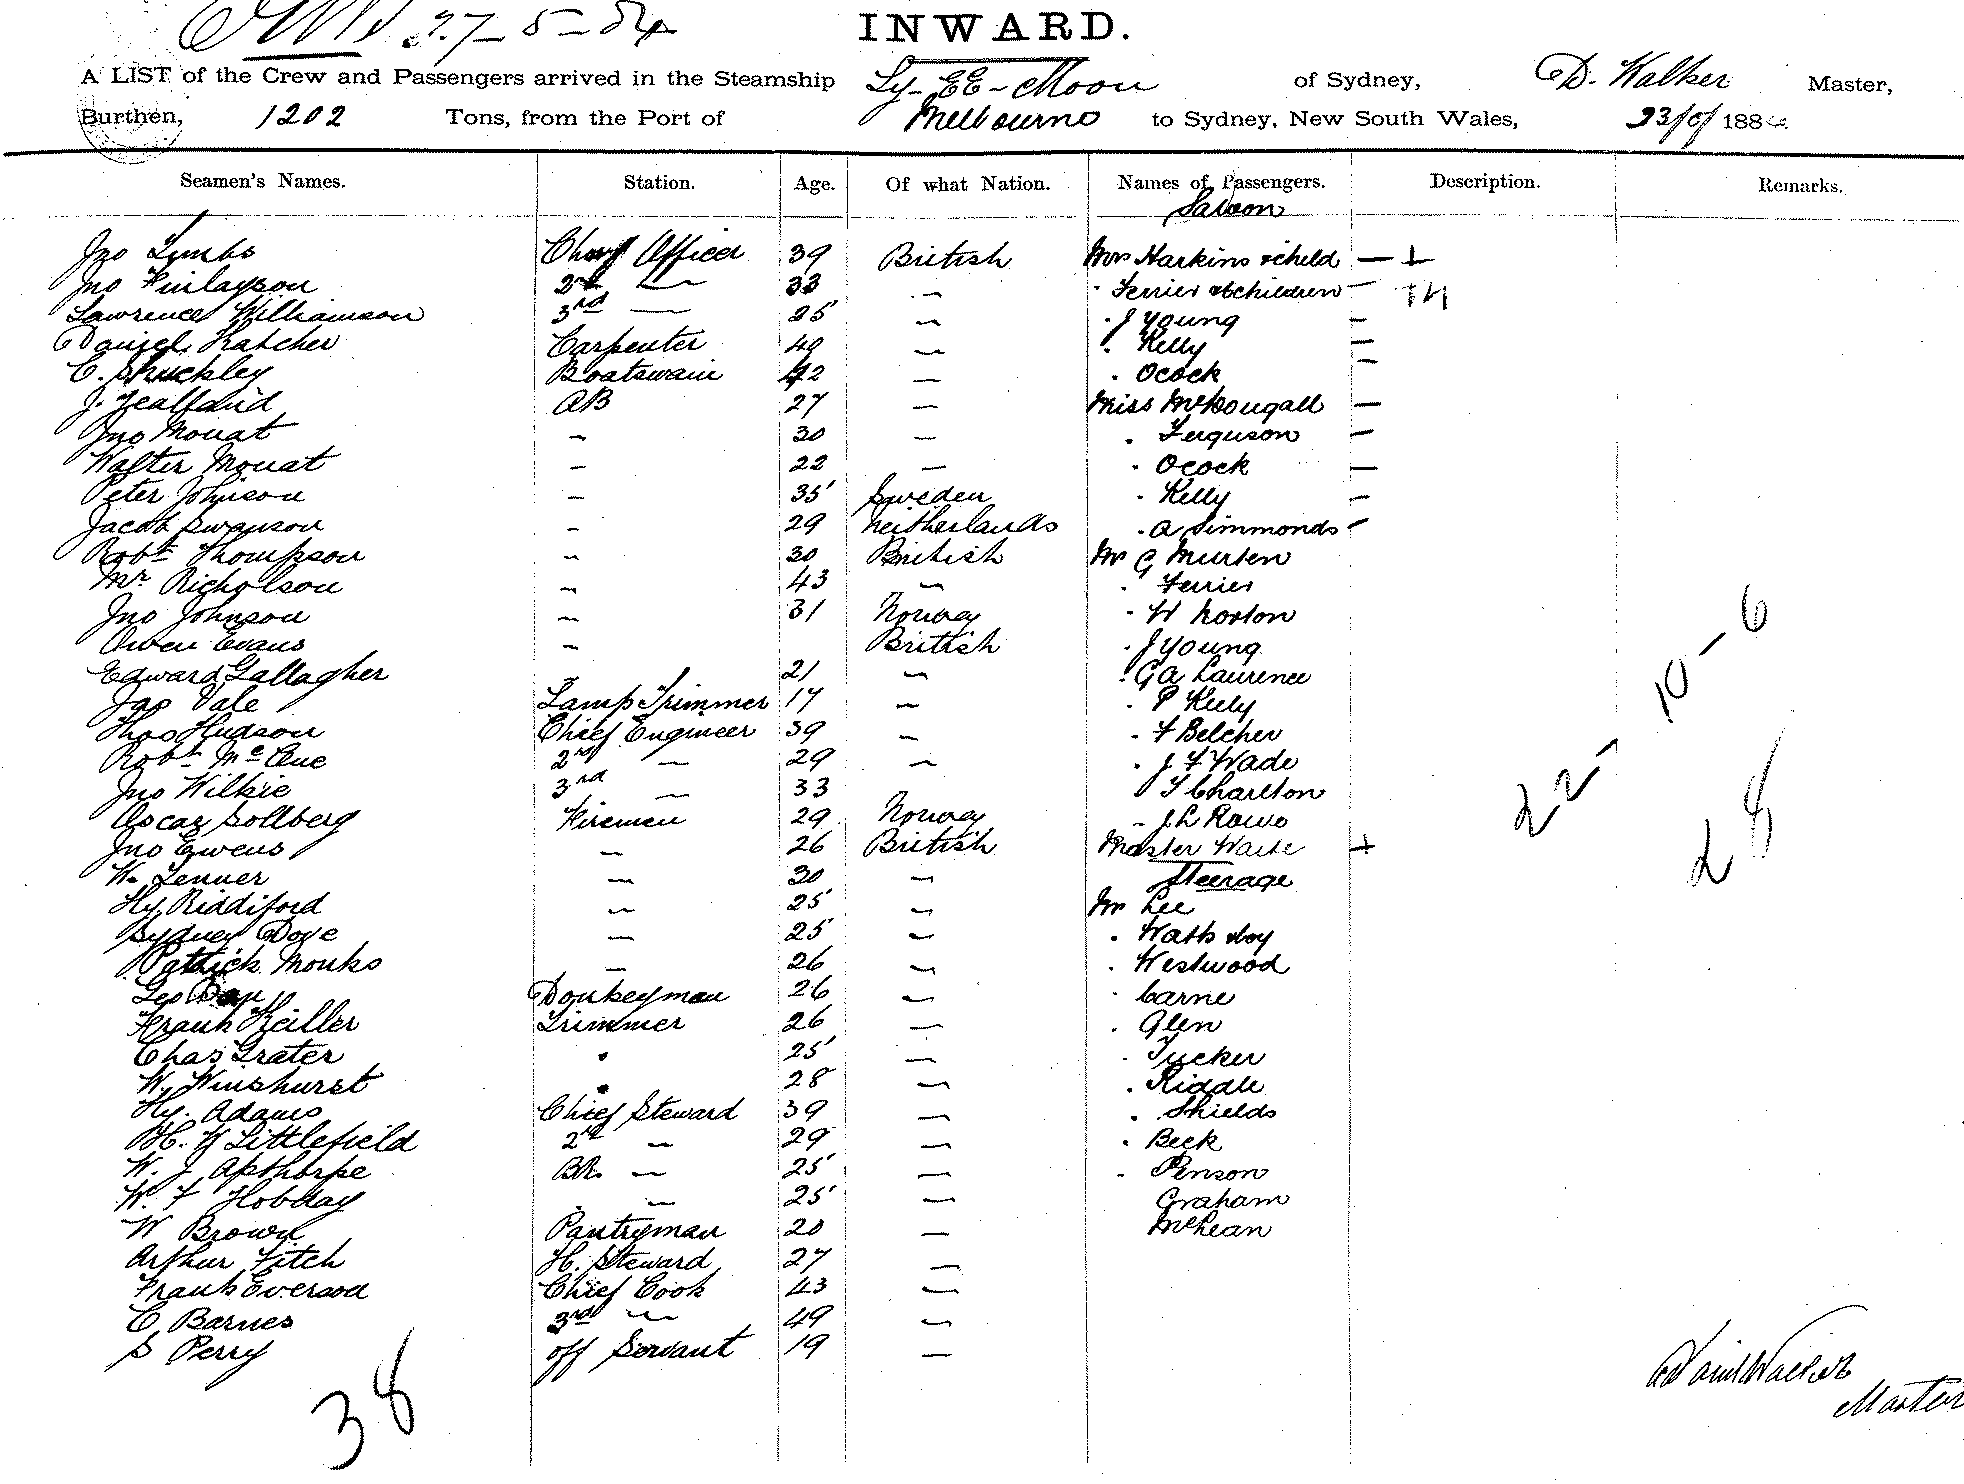 27-5-84
INWARD.
A LIST of the Crew and Passengers arrived in the Steamship Ly-EE-Moon of Sydney, D. Walker Master,
Burthen, 1202 Tons, from the Port of Melbourne to Sydney, New South Wales, 188
Seamen's Names. Station. Age. Of what Nation. Names of Passengers. Description. Remarks.
Saloon
Jno Limbs Chief Officer 39 British Mrs Harkins & child — +
Jno Finlayson 2nd — 33 " Ferrier & children —
Lawrence Williamson 3rd — 25 " " J Young —
Daniel Thatcher Carpenter 49 " " Kelly —
C. Shuckley Boatswain 42 " " Ocock —
J. AB 27 " Miss McDougall —
Jno Mouat " 30 " " Ferguson —
Walter Mouat " 22 " " Ocock —
Peter Johnson " 35 Sweden " Kelly —
Jacob Swanson " 29 Neitherlands " A Simmonds
Robt Thompson " 30 British Mr G Murten
Mr Richolson " 43 " " Ferrier
Jno Johnson " 31 Norway " H Norton
Owen Evans " British " J Young
Edward Gallagher 21 " " GA Laurence
Jas Vale Lamp Trimmer 17 " " P Kelly
Thos Hudson Chief Engineer 39 " " F Belcher
Robt McCue 2nd — 29 " " J F Wade
Jno Wilkie 3rd — 33 T Charlton
Oscar Sollberg Firemen 29 Norway " J L Rowe
Jno Ewens " 26 British Master +
W. Jenner " 30 " Steerage
Hy Riddiford " 25 " Mr Lee
Sydney Dove " 25 " " Watts & boy
Patrick Monks " 26 " " Westwood
Geo Donkeyman 26 " " Carne
Frank Keiller Trimmer 26 " " Glen
Chas Grater " 25 " " Tucker
W. Winshurst " 28 " " Riddle
Hy. Adams Chief Steward 39 " " Shields
H. Littlefield 2nd — 29 " " Beck
W. J Apthorpe BR. — 25 " " Penson
W. F Hobday " — 25 " Graham
W Brown Pantryman 20 " McLean
Arthur Fitch H. Steward 27 "
Frank Everson Chief Cook 43 "
C Barnes 3rd " 49 "
S Perry off Servant 19 "
38
22 - 10 - 6
28
David Walker
Master